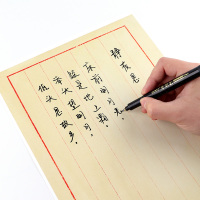 静夜思
床前明月光
疑是地上霜。
举头望明月，
低头思故乡。